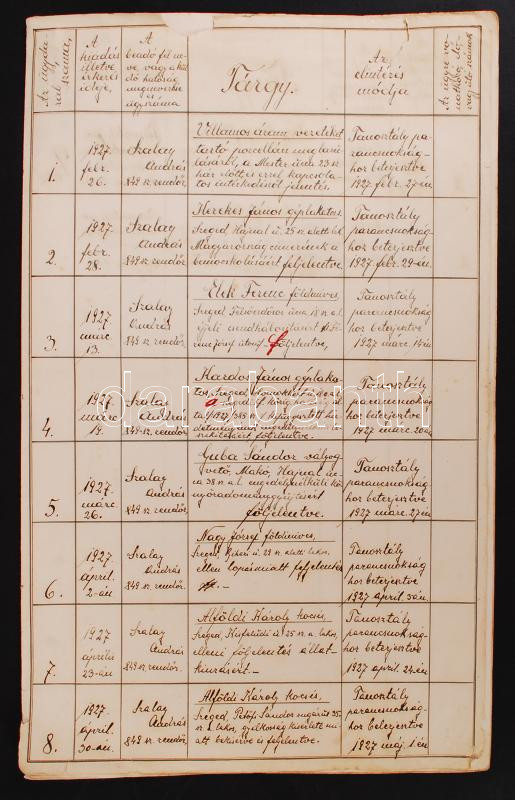 Az ügyda-
rab
száma,
A
kiadás
illetve
érkezés
ideje,
A
beadó fél ne-
ve, vagy a kül-
dő hatóság
megnevezése
és
ügyszáma
Tárgy.
Az
elintézés
módja
Az ügyre vo-
natkozó elő-
vagy utó számok
1.
1927
febr.
26.
Szalay
András
849 sz. rendőr.
Villamos áram vezetéket
tartó porcellán meglazu-
lásáról, a Mester ucca 23 sz.
ház előtt és ezzel kapcsola-
tos intézkedésről jelentés.
Tanosztály pa-
rancsnokság-
hoz beterjesztve
1927 febr. 27-én.
2.
1927
febr.
28.
Szalay
András
849 sz. rendőr.
Kerekes János géplakatos
Szeged, Hajnal u. 25 sz. alatti lak.
Magyarország címerének a
bemocskolásáért feljelentve.
Tanosztály
parancsnokság
hoz beterjesztve
1927 febr. 29-én.
3.
1927
márc.
13.
Szalay
András
849 sz. rendőr.
Elek Ferenc földmíves,
Szeged, ucca 18 sz. a. l.
éjjeli csendháborításért
József útról - följelentve,
Tanosztály
parancsnokság
hoz beterjesztve
1927 márc. 14-én
4.
1927
márc.
19.
Szalay
András
849 sz. rendőr.
Kardos János géplaka-
tos, Szeged,
a szegedi
1927
hirdetmények
följelentve.
Tanosztály
parancsnokság
hoz beterjesztve
1927 márc. 20-án
5.
1927.
márc.
26.
Szalay
András
849 sz. rendőr.
Guba Sándor vályog-
vető, Makó, Hajnal uc-
ca 38 sz. a. l. engedély nélküli kö-
nyöradománygyűjtésért
följelentve.
Tanosztály
parancsnokság-
hoz beterjesztve
1927 márc. 27-én
6.
1927.
április.
2-án
Szalay
András
849 sz. rendőr.
Nagy József földmíves,
Szeged, u. 29 sz. alatti lakos,
ellen lopás miatt feljelentés
Tanosztály
parancsnokság
hoz beterjesztve
1927 april. 3án.
7.
1927
április
23-án
Szalay
András
849 sz. rendőr.
Alföldi Károly kocsis,
Szeged, Kisfaludi u. 25 sz. a. lakos,
elleni följelentés állat-
kínzásért.-
Tanosztály
parancsnokság-
hoz beterjesztve
1927 april. 24-én
8.
1927.
április.
30-án.
Szalay
András
849 sz. rendőr.
Alföldi Károly kocsis,
Szeged, Petőfi Sándor sugárút 35
sz. l. lakos, gyilkosság kísérlete mi-
att bekísérve és feljelentve.
Tanosztály
parancsnokság-
hoz beterjesztve
1927 máj. 1.én
darabanth